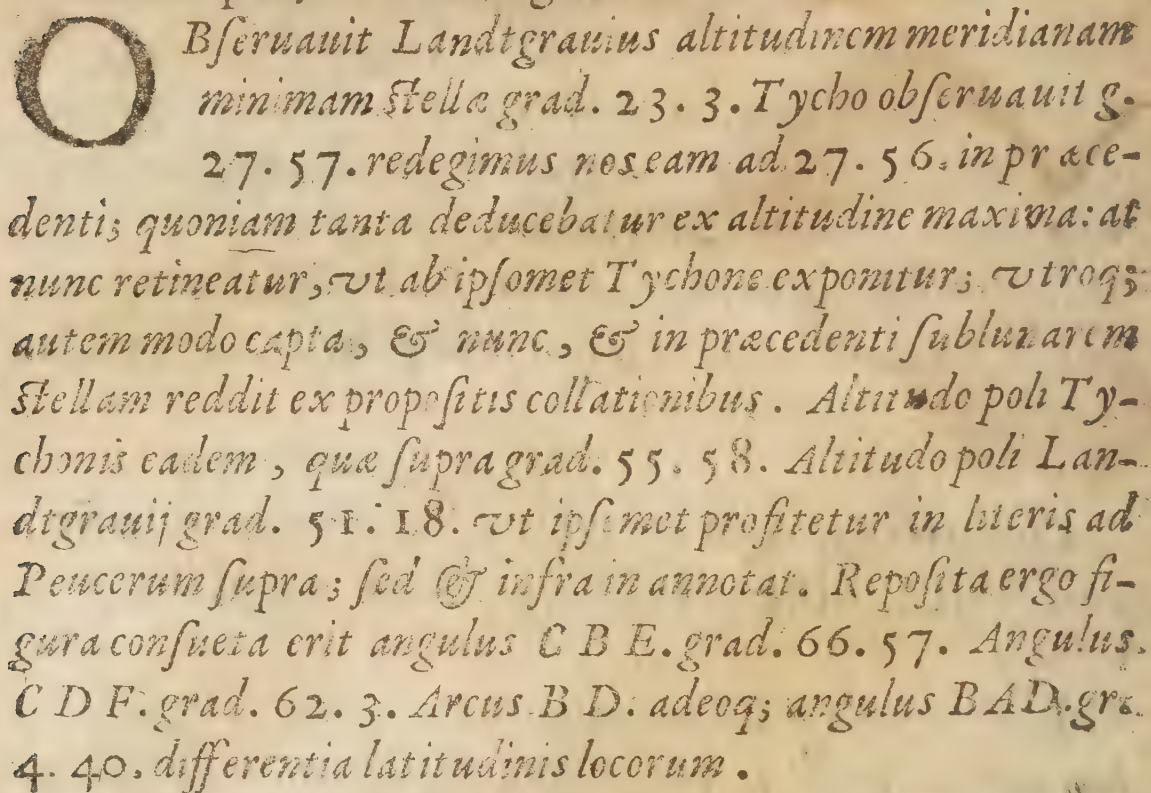 OBſeruauit Landtgrauius altitudinem meridianam
minimam ſtellæ grad. 23. 3. Tycho obſeruauit g.
27. 57. redegimus nos eam ad 27. 56. in præce-
denti; quoniam tanta deducebatur ex altitudine maxima: at
nunc retineatur, vt ab ipſomet Tychone exponitur; vtroq;
autem modo capta, & nunc, & in præcedenti ſublunarem
ſtellam reddit ex propoſitis collationibus. Altitudo poli Ty-
chonis eadem, quæ ſupra grad. 55. 58. Altitudo poli Lan-
dtgrauij grad. 51. 18. vt ipſemet profitetur in literis ad
Peucerum ſupra; ſed & infra in annotat. Repoſita ergo fi-
gura conſueta erit angulus C B E. grad. 66. 57. Angulus.
C D F. grad. 62. 3. Arcus B D. adeoq; angulus B A D. gr.
4. 40. differentia latitudinis locorum.